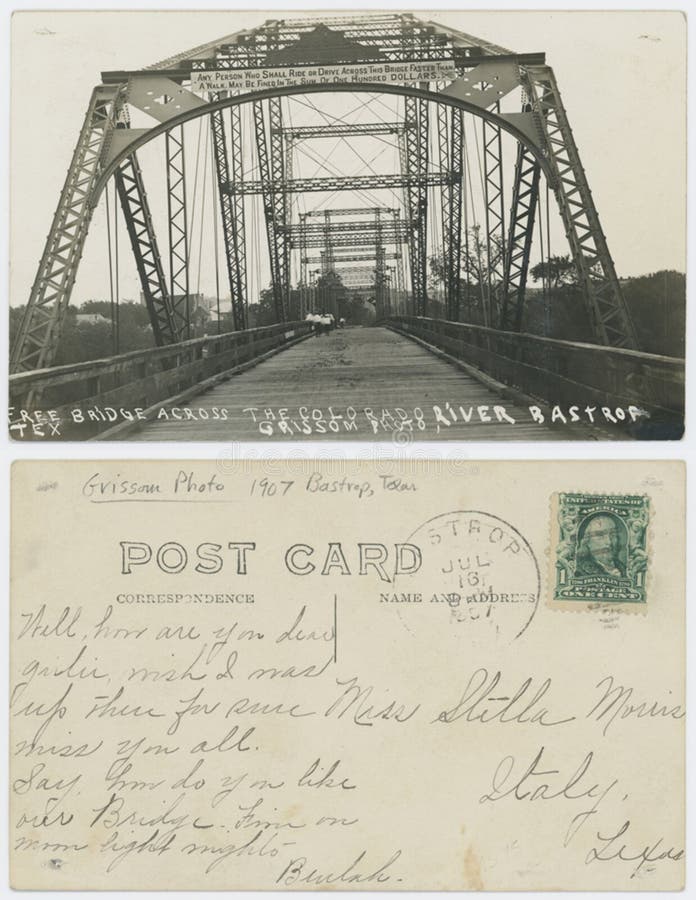 ANY PERSON WHO SHALL RIDE OR DRIVE ACROSS THIS BRIDGE FASTER THAN
A WALK, MAY BE FINED IN THE SUM OF ONE HUNDRED DOLLARS.
FREE BRIDGE ACROSS THE COLORADO RIVER BASTROP
TEX
GRISSOM PHOTO,
Grissom Photo 1907 Bastrop, Texas
POST CARD
CORRESPONDENCE
NAME AND ADDRESS
STROP
JUL
16
1907
1 FRANKLIN 1
POSTAGE
ONE CENT
Well, how are you dear
girlie, wish I was
up there for sure
miss you all.
Say, how do you like
our Bridge. Fine on
moon light nights
Beulah.
Miss Stella Morris
Italy,
Texas
dreamstime